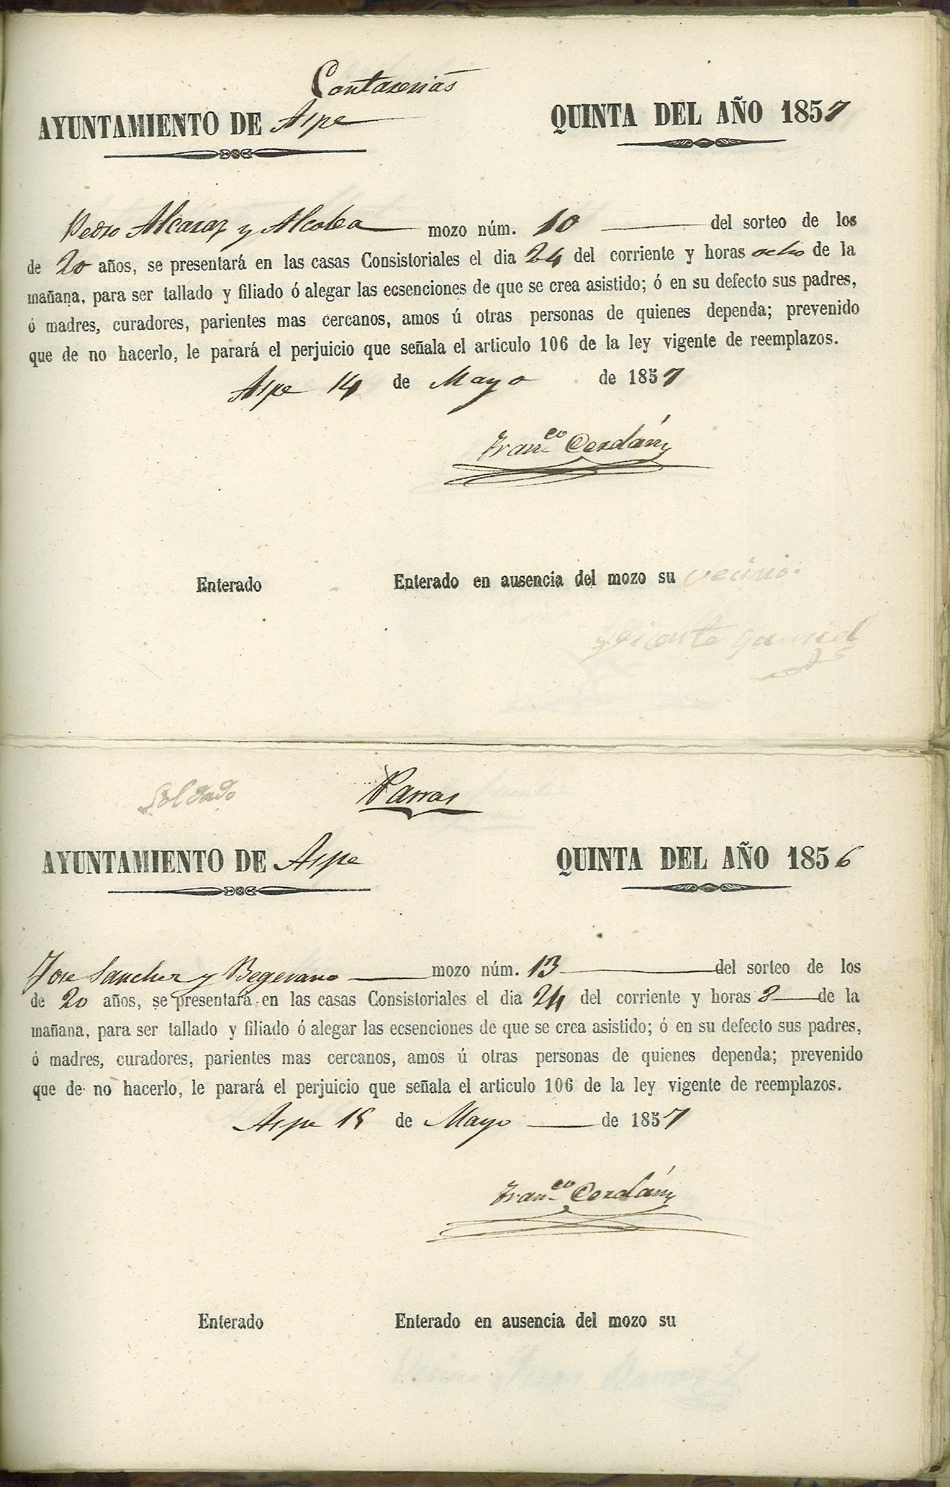 AYUNTAMIENTO DE Aspe
QUINTA DEL AÑO 1857
Pedro Alcaraz y Alcolea mozo núm. 10 del sorteo de los
de 20 años, se presentará en las casas Consistoriales el dia 24 del corriente y horas ocho de la
mañana, para ser tallado y filiado ó alegar las ecsenciones de que se crea asistido; ó en su defecto sus padres,
ó madres, curadores, parientes mas cercanos, amos ú otras personas de quienes dependa; prevenido
que de no hacerlo, le parará el perjuicio que señala el articulo 106 de la ley vigente de reemplazos.
Aspe 14 de Mayo de 1857
Fran.co Cerdán
Enterado
Enterado en ausencia del mozo su vecino.
Vicente
Soldado
Parras
AYUNTAMIENTO DE Aspe
QUINTA DEL AÑO 1856
Jose Sanchez y Begerano mozo núm. 13 del sorteo de los
de 20 años, se presentará en las casas Consistoriales el dia 24 del corriente y horas 8 de la
mañana, para ser tallado y filiado ó alegar las ecsenciones de que se crea asistido; ó en su defecto sus padres,
ó madres, curadores, parientes mas cercanos, amos ú otras personas de quienes dependa; prevenido
que de no hacerlo, le parará el perjuicio que señala el articulo 106 de la ley vigente de reemplazos.
Aspe 15 de Mayo de 1857
Fran.co Cerdán
Enterado
Enterado en ausencia del mozo su